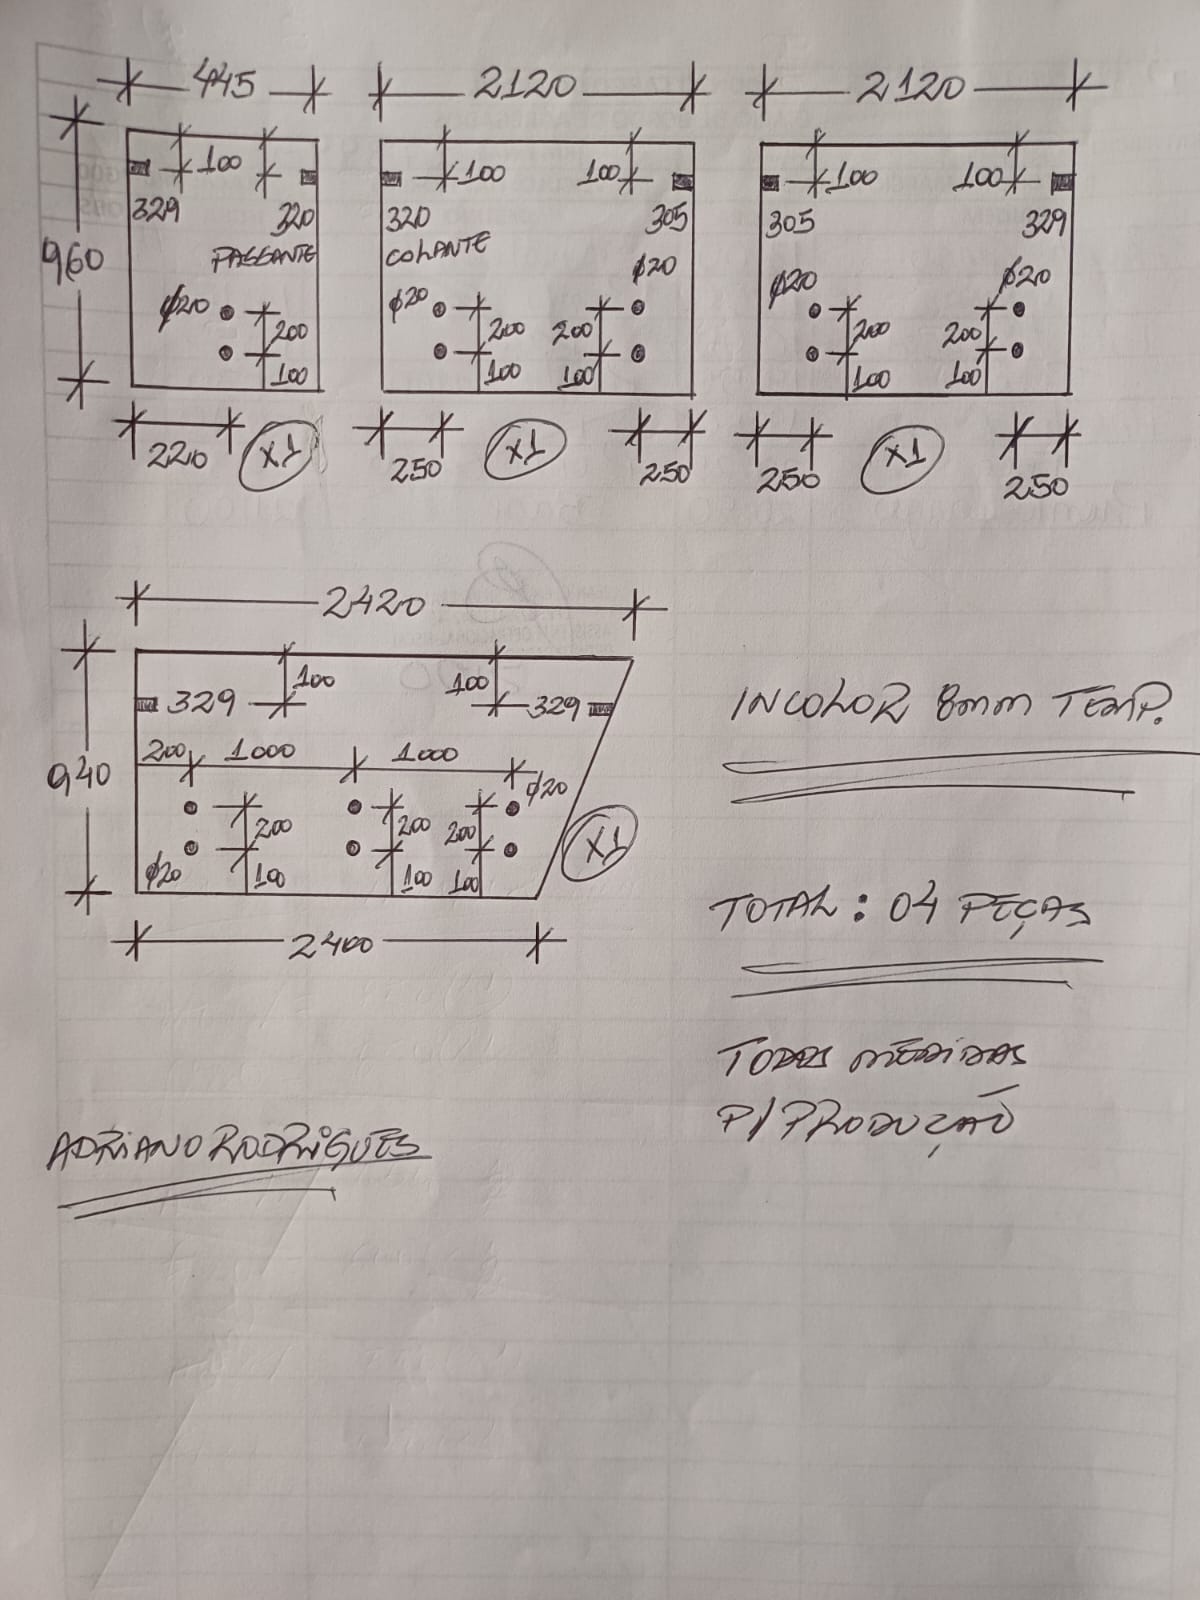 445 2120 2120
960
100 100 100 100 100
329 320 320 305 305 329
PASSANTE COLANTE
ϕ20 ϕ20 ϕ20 ϕ20 ϕ20
200 200 200 200 200
100 100 100 100 100
220 X1 250 X1 250 250 X1 250
2420
940
100 100
329 329
200 1000 1000
ϕ20
200 200 200
ϕ20 100 100 100
X1
2400
INCOLOR 8mm TEMP.
TOTAL: 04 PEÇAS
TODAS MEDIDAS
P/ PRODUÇÃO
ADRIANO RODRIGUES